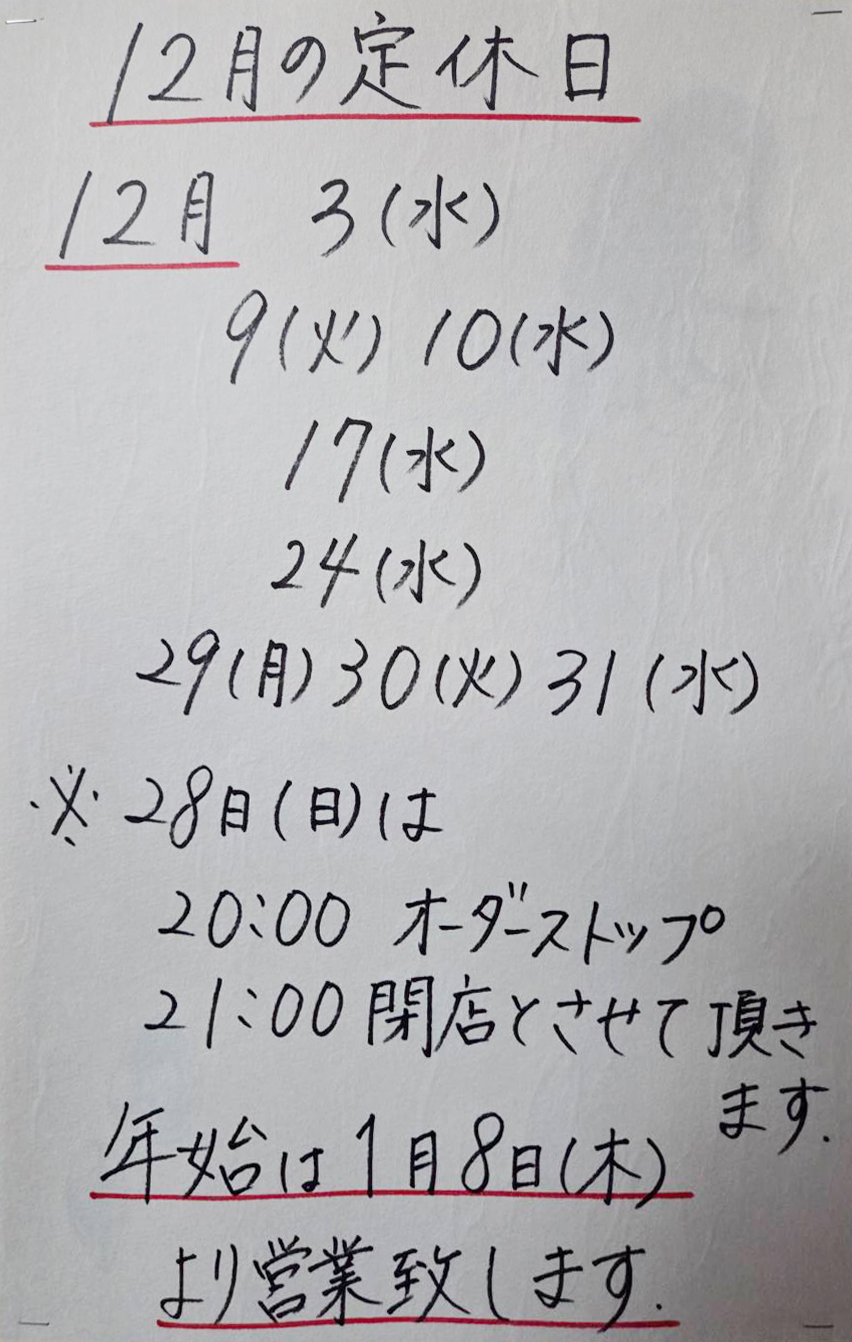 12月の定休日
12月 3(水)
9(火) 10(水)
17(水)
24(水)
29(月) 30(火) 31(水)
※ 28日(日)は
20:00 オーダーストップ
21:00 閉店とさせて頂き
ます.
年始は1月8日(木)
より営業致します.